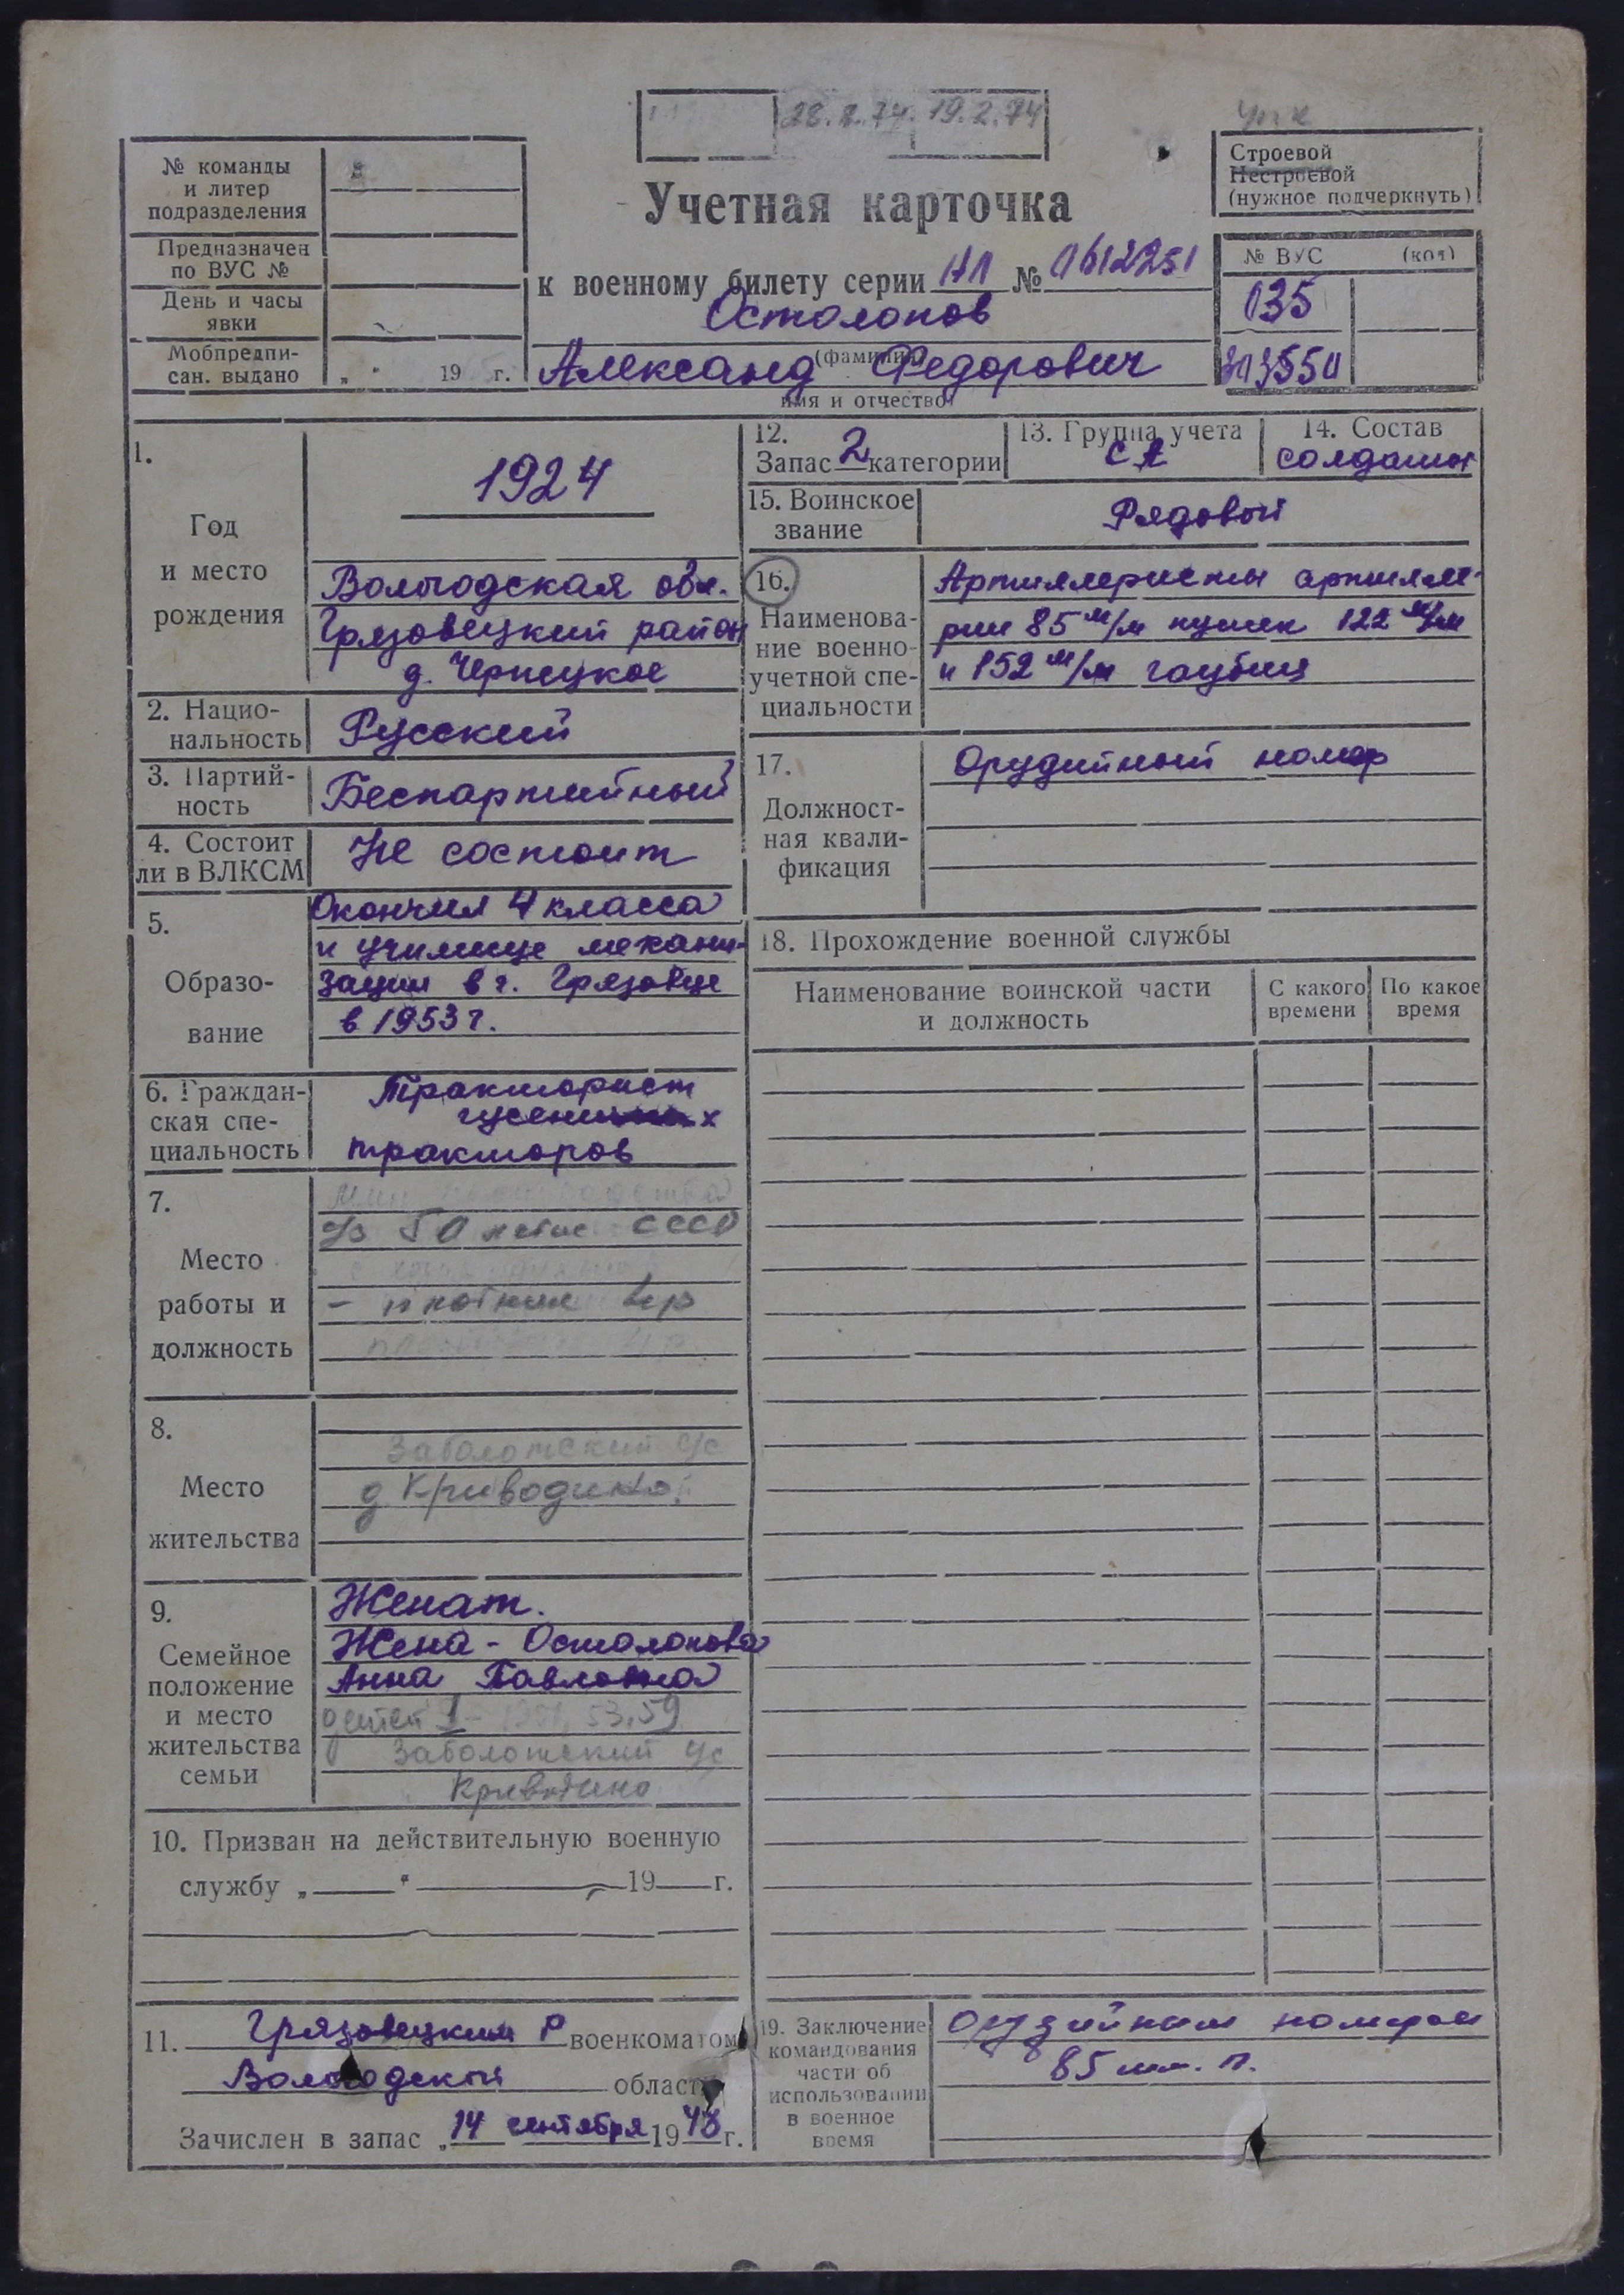 28.2.74. 19.2.74
Строевой
Нестроевой
(нужное подчеркнуть)
№ команды
и литер
подразделения
Предназначен
по ВУС №
День и часы
явки
Мобпредпи-
сан. выдано „ “ 19 г.
Учетная карточка
к военному билету серии НЛ № 0612251
Остолопов
(фамилия)
Александ Федорович
имя и отчество
№ ВУС (код)
035
303550
1.
Год
и место
рождения
1924
Вологодская обл.
Грязовецкий район
д. Чернецкое
2. Нацио-
нальность
Русский
3. Партий-
ность
Беспартийный
4. Состоит
ли в ВЛКСМ
Не состоит
5.
Образо-
вание
Окончил 4 класса
и училище механи-
зации в г. Грязовце
в 1953 г.
6. Граждан-
ская спе-
циальность
Тракторист
гусеничных
тракторов
7.
Место
работы и
должность
50 летие СССР
8.
Место
жительства
Заболотский с/с
д. Криводино
9.
Семейное
положение
и место
жительства
семьи
Женат.
Жена - Остолопова
Анна Павловна
детей 53, 59
Заболотский с/с
Криводино
10. Призван на действительную военную
службу „ “ 19 г.
11. Грязовецким Р военкоматом
Вологодской области
Зачислен в запас „14 сентября 1948 г.
12.
Запас 2 категории
13. Группа учета
СА
14. Состав
солдаты
15. Воинское
звание
Рядовой
16.
Наименова-
ние военно-
учетной спе-
циальности
Артиллеристы артилле-
рии 85 м/м пушек 122 м/м
и 152 м/м гаубиц
17.
Должност-
ная квали-
фикация
Орудийный номер
18. Прохождение военной службы
Наименование воинской части
и должность
С какого
времени
По какое
время
19. Заключение
командования
части об
использовании
в военное
время
орудийным номером
85 мм. п.